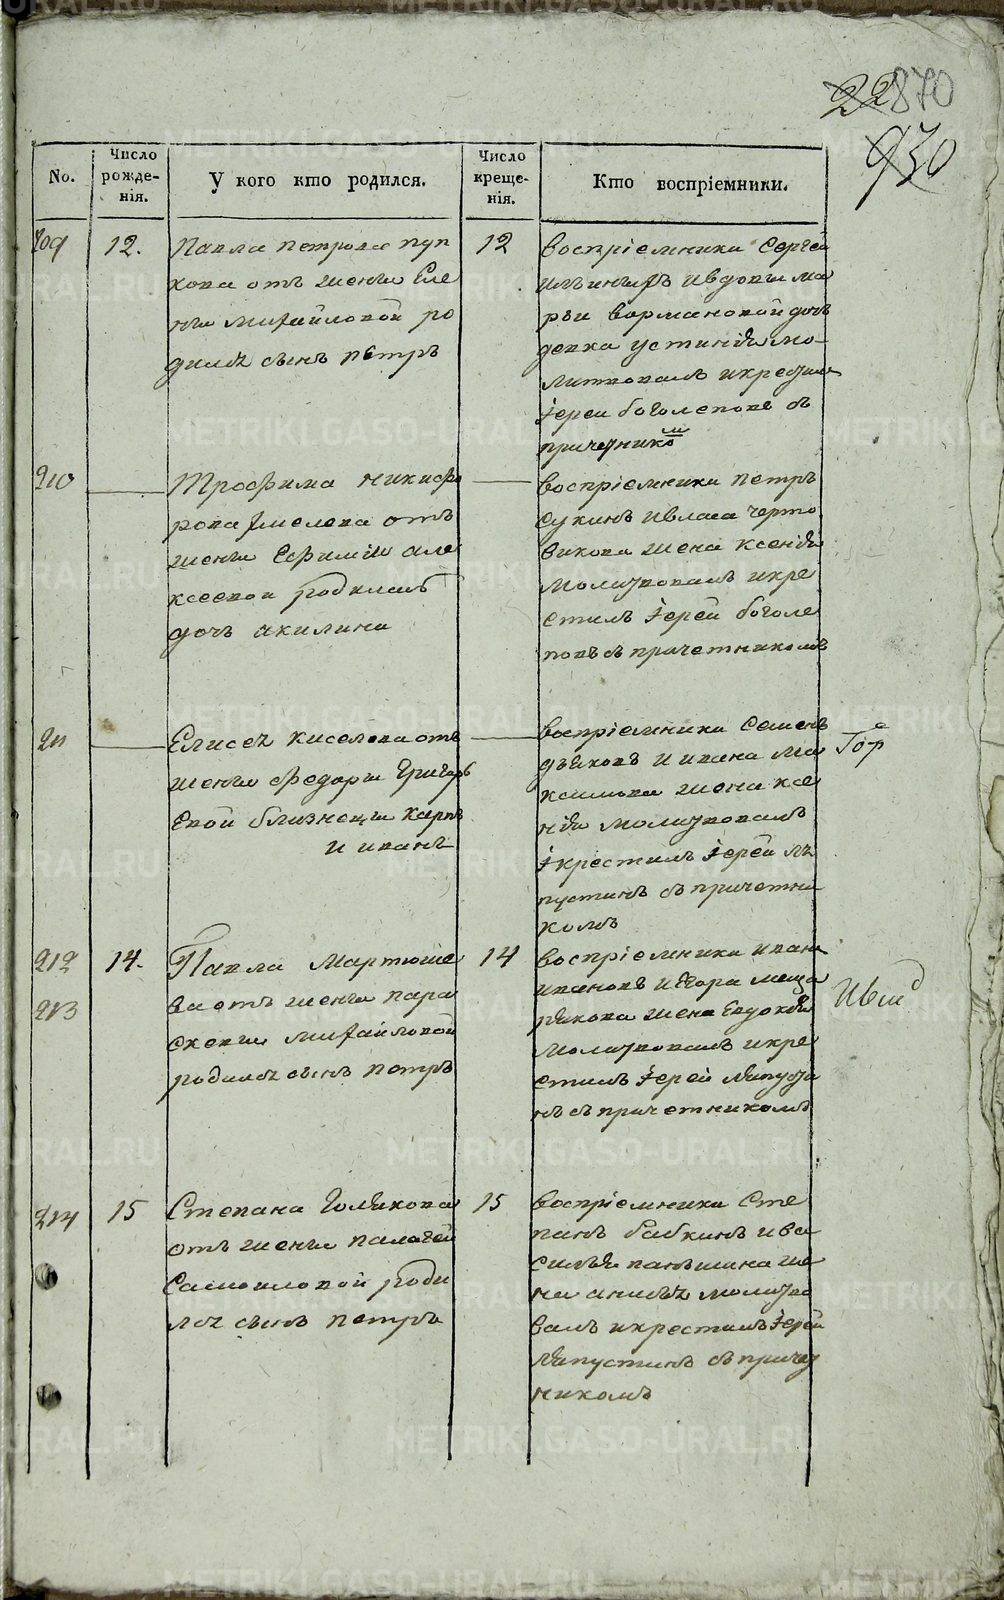 22 870
930
No.
Число рожде-нія.
У кого кто родился.
Число креще-нія.
Кто воспріемники.
209
12.
Павла петрова пуп
кова отъ жены Еле
ны михайловой ро
дился сынъ петръ
12
воспріемники Сергей
ивдовы ма
рьи вормановой дочь
девка устинія мо-
литвовалъ икрестил
іерей боголеповъ съ
причетником
210
Трофима никифо
рова хмелева отъ
жены Ефиміи але
ксеевой родилась
дочь акилина
воспріемники петръ
сукинъ ивласа черто
викова жена ксенія
молитвовалъ икре
стилъ іерей боголе
повъ съ причетникомъ
211
Елисея киселева отъ
жены федоры григорь
евой близнецы карпъ
и иванъ
воспріемники Семенъ
дьяковъ и ивана ма
ксимова жена ксе
нія молитвовалъ
икрестилъ іерей ля
пустинъ съ причетни
комъ
212
213
14.
Павла Мартюше
ва отъ жены пара
скевы михайловой
родился сынъ петръ
14
воспріемники иванъ
ивановъ иегора меща
рякова жена Евдокія
молитвовалъ икре
стилъ іерей ляпусти
нъ съ причетникомъ
214
15
Степана Голякова
отъ жены палагеи
Самоиловой роди
лся сынъ петръ
15
воспріемники Сте
панъ бабкинъ ива
силья паньшина же
на молитво
валъ икрестилъ іерей
ляпустинъ съ причет
никомъ
METRIKI.GASO-URAL.RU